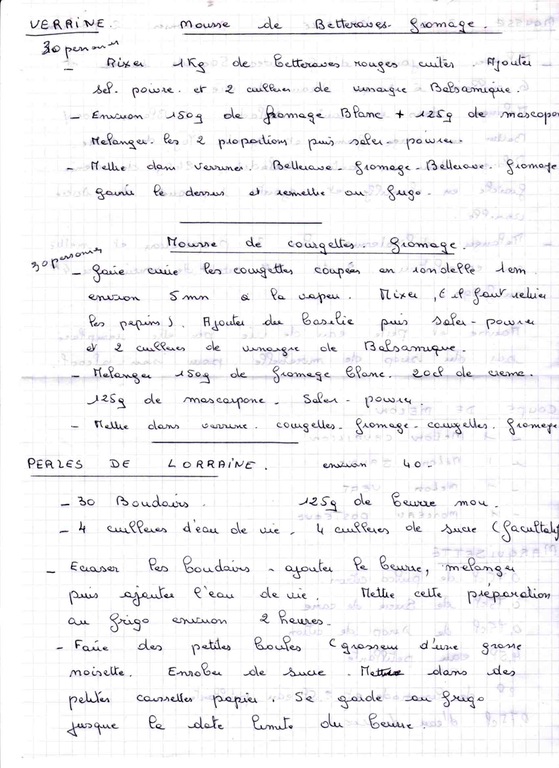 VERRINE. Mousse de Betteraves-fromage.
30 personnes
- Mixer 1Kg de betteraves rouges cuites. Ajouter
sel. poivre et 2 cuilleres de vinaigre Balsamique.
- Environ 150g de fromage Blanc + 125g de mascapon
Melanger les 2 proportions puis saler-poivrer.
- Mettre dans verrines. Betterave-fromage-Betterave. fromage
garnir le dessus et remettre au frigo.
Mousse de courgettes. fromage.
30 personnes
- faire cuire les courgettes coupées en rondelle 1cm
environ 5mn à la vapeur. Mixer, (il faut retirer
les pepins). Ajouter du basilic puis saler-poivrer
et 2 cuilleres de vinaigre de Balsamique.
- Melanger 150g de fromage blanc. 20cl de creme.
125g de mascarpone. Saler-poivrer.
- Mettre dans verrine. courgettes-fromage-courgettes. fromage
PERLES DE LORRAINE. environ 40.
- 30 Boudoirs. 125g de beurre mou.
- 4 cuilleres d'eau de vie. 4 cuilleres de sucre (facultatif
- Ecraser les boudoirs - ajouter le beurre, melanger
puis ajouter l'eau de vie. Mettre cette préparation
au frigo environ 2 heures.
- Faire des petites boules (grosseur d'une grosse
noisette. Enrober de sucre. Mettre dans des
petites caissettes papier. Se garde au frigo
jusque la date limite du beurre.